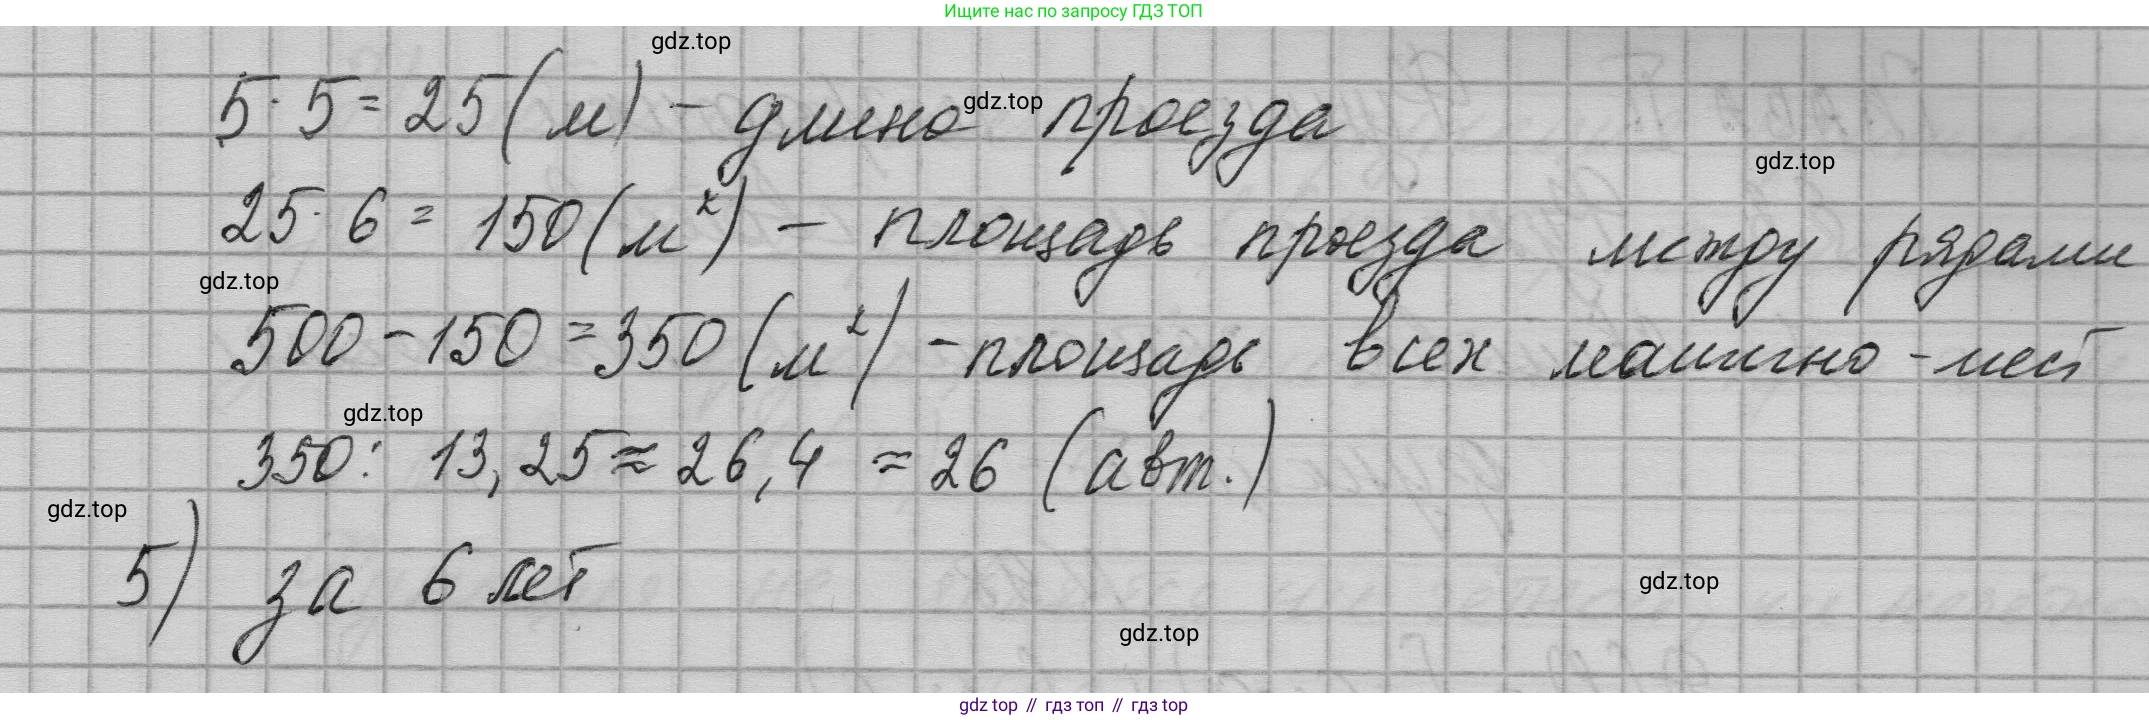 Ищите нас по запросу ГДЗ ТОП
gdz.top
5 · 5 = 25 (м) - длина проезда
gdz.top
gdz.top
25 · 6 = 150 (м²) - площадь проезда между рядами
gdz.top
500 - 150 = 350 (м²) - площадь всех машино-мест
gdz.top
350 : 13,25 ≈ 26,4 ≈ 26 (авт.)
gdz.top
5) за 6 лет
gdz.top
gdz.top
gdz.top // гдз топ // gdz.top